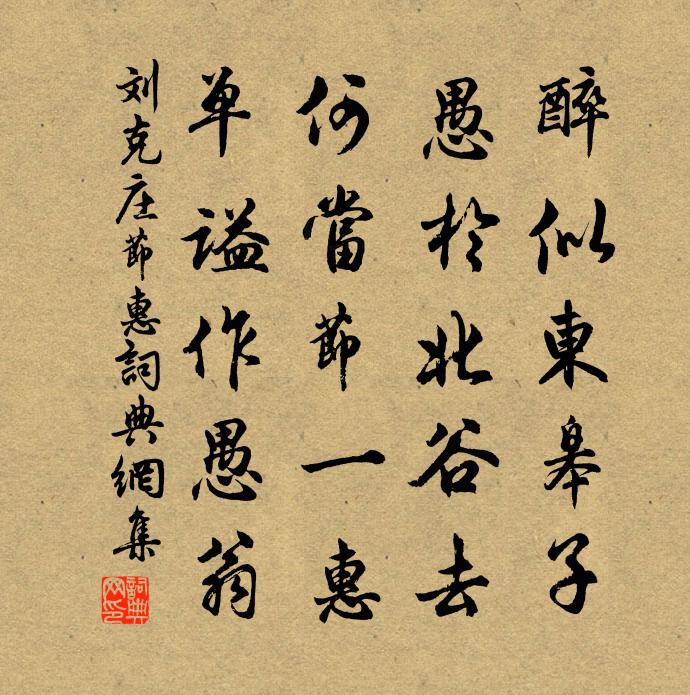 醉似東皋子
愚於北谷去
何當節一惠
单谥作愚翁
刘克庄節惠詞典網集
詞典网印